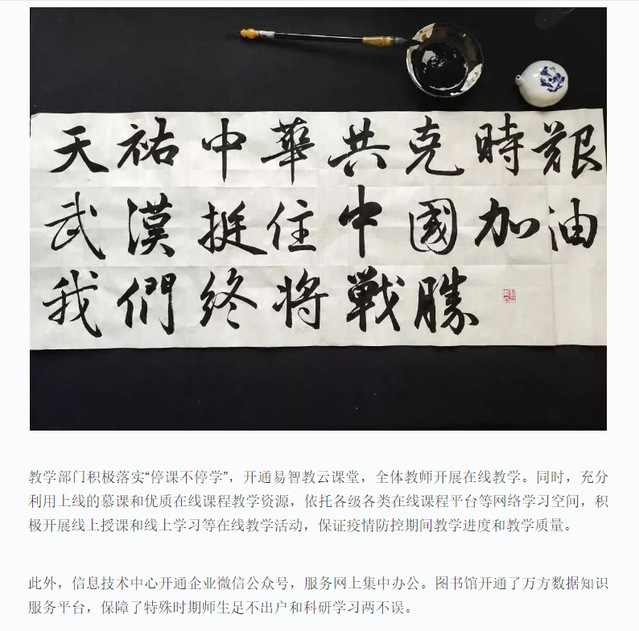 天祐中華共克時艱
武漢挺住中國加油
我們终将戰勝
教学部门积极落实“停课不停学”，开通易智教云课堂，全体教师开展在线教学。同时，充分
利用上线的慕课和优质在线课程教学资源，依托各级各类在线课程平台等网络学习空间，积
极开展线上授课和线上学习等在线教学活动，保证疫情防控期间教学进度和教学质量。
此外，信息技术中心开通企业微信公众号，服务网上集中办公。图书馆开通了万方数据知识
服务平台，保障了特殊时期师生足不出户和科研学习两不误。